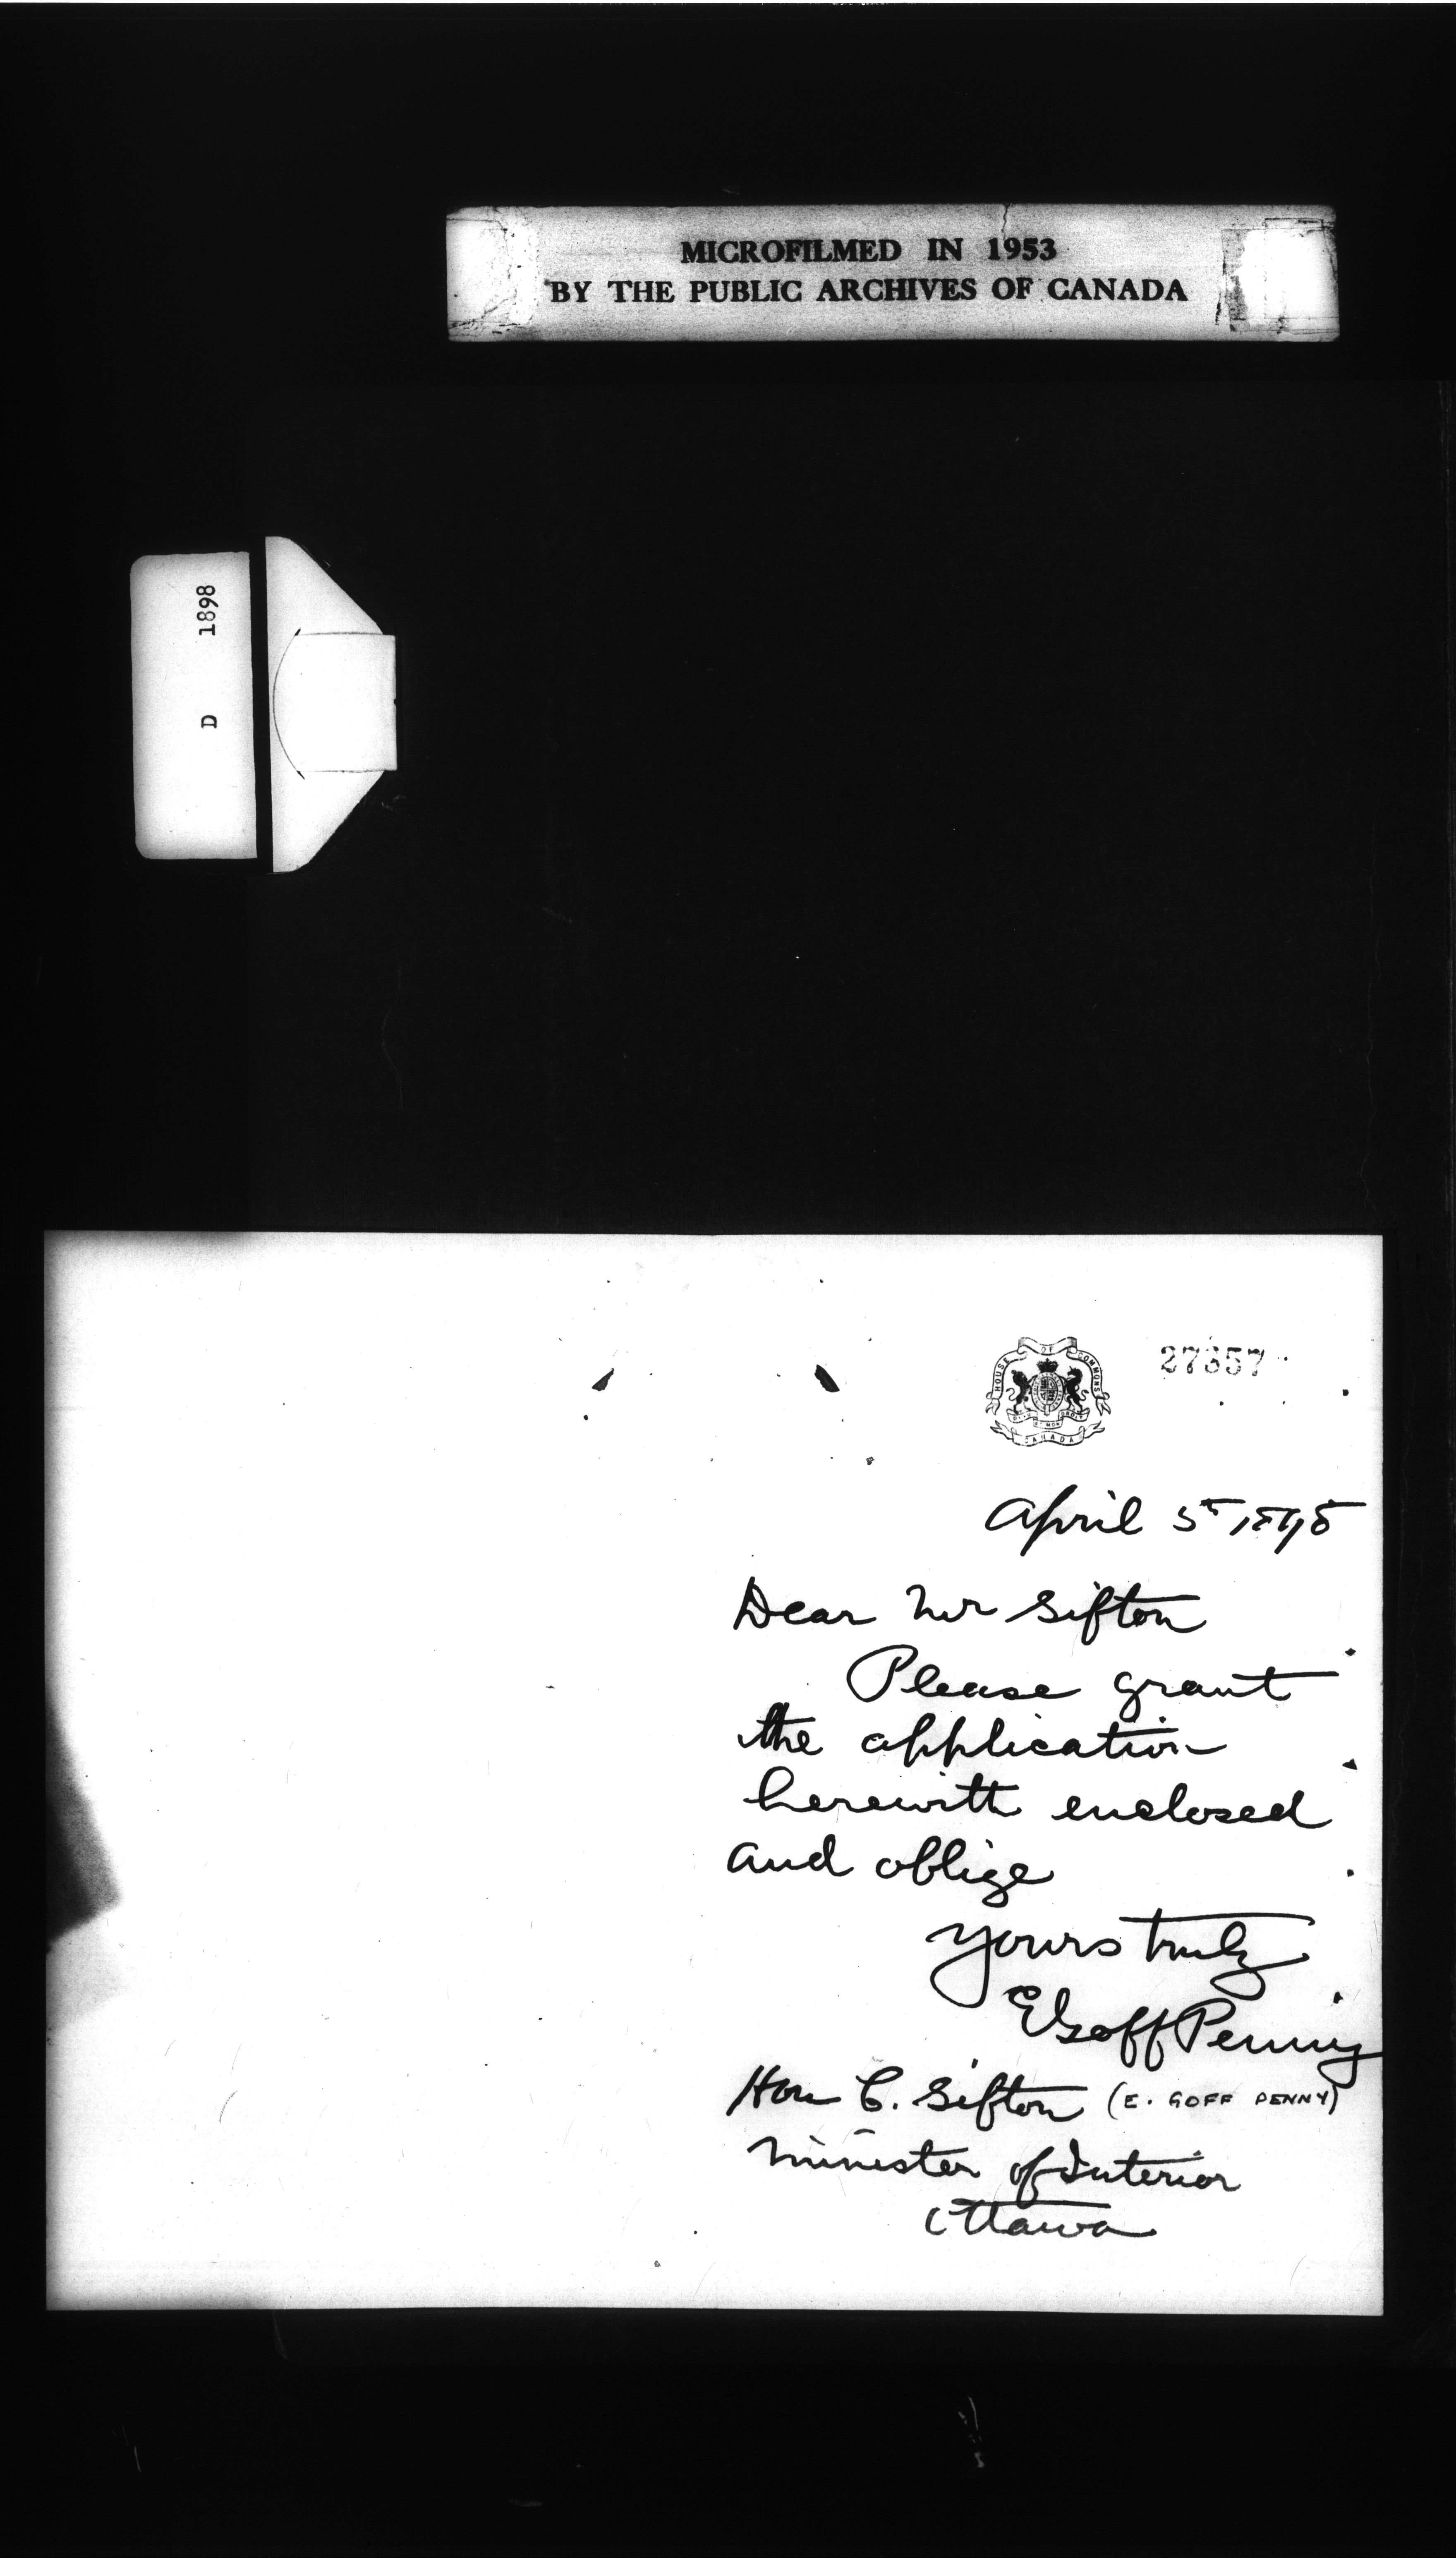 MICROFILMED IN 1953
BY THE PUBLIC ARCHIVES OF CANADA
D 1898
HOUSE OF COMMONS
CANADA
April 5 1898
Dear Mr Sifton
Please grant
the application
herewith enclosed
and oblige
Yours truly
E Goff Penny
Hon C. Sifton (E. GOFF PENNY)
Minister of Interior
Ottawa